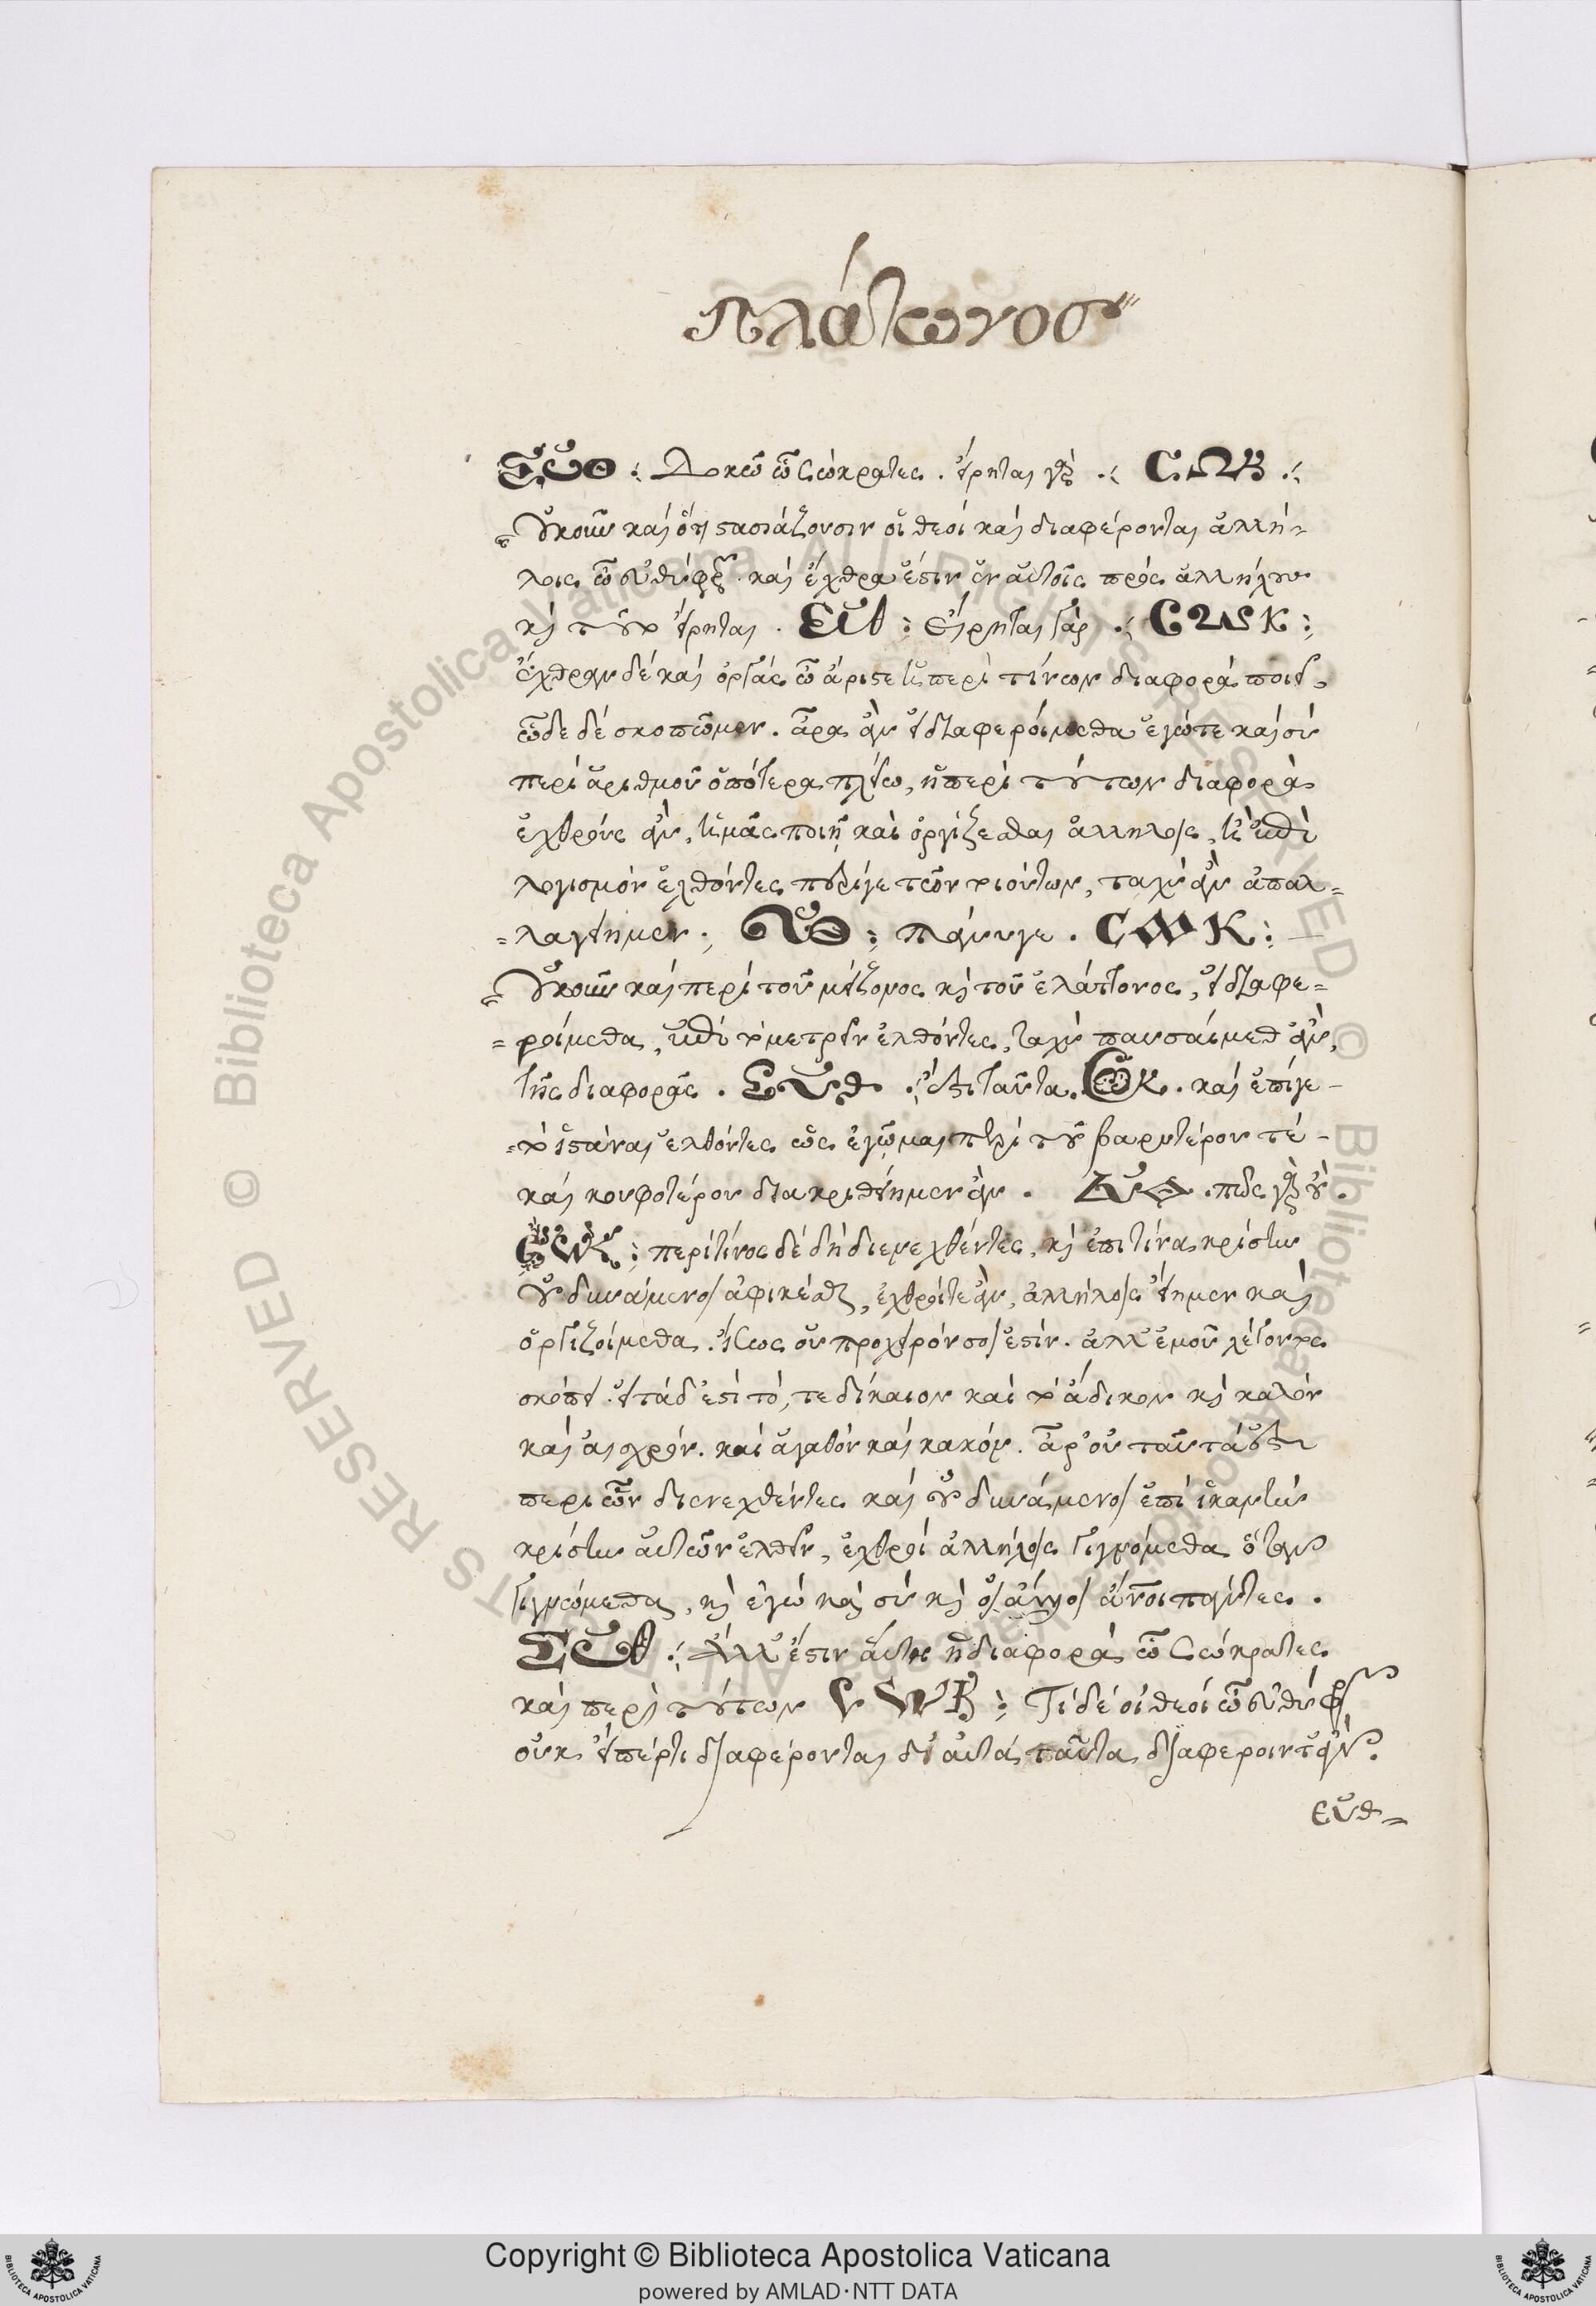 Πλάτωνος
ΕΥΘ: Δοκῶ ὦ Σώκρατες. εἴρηται γάρ. ΣΩΚ.
Οὐκοῦν καὶ ὅτι στασιάζουσιν οἱ θεοὶ καὶ διαφέρονται ἀλλή-
λοις ὦ εὐθύφρων. καὶ ἔχθρα ἐστὶν ἐν αὐτοῖς πρὸς ἀλλήλους
καὶ τοῦτο εἴρηται. ΕΥΘ: Εἴρηται γάρ. ΣΩΚ:
ἔχθραν δὲ καὶ ὀργὰς ὦ ἄριστε ἡ περὶ τίνων διαφορὰ ποιεῖ,
ὧδε δὲ σκοπῶμεν. ἆρα ἂν εἰ διαφεροίμεθα ἐγώ τε καὶ σὺ
περὶ ἀριθμοῦ ὁπότερα πλείω, ἡ περὶ τούτων διαφορὰ
ἐχθροὺς ἂν, ἡμᾶς ποιῇ καὶ ὀργίζεσθαι ἀλλήλοις, ἢ ἐπὶ
λογισμὸν ἐλθόντες περίγε τῶν τοιούτων, ταχὺ ἂν ἀπαλ-
-λαγείημεν; ΕΥΘ: πάνυγε. ΣΩΚ:
Οὐκοῦν καὶ περὶ τοῦ μείζονος καὶ τοῦ ἐλάττονος, εἰ διαφε-
-ροίμεθα, ἐπὶ τὸ μετρεῖν ἐλθόντες, ταχὺ παυσαίμεθ' ἂν,
τῆς διαφορᾶς. ΕΥΘ. ἔστι ταῦτα. ΣΩΚ. καὶ ἐπίγε-
-τὸ ἱστάναι ἐλθόντες ὡς ἐγῷμαι περὶ τοῦ βαρυτέρου τέ-
καὶ κουφοτέρου διακριθείημεν ἂν. ΕΥΘ. πῶς γὰρ οὔ.
ΣΩΚ: περὶ τίνος δὲ δὴ διενεχθέντες, καὶ ἐπὶ τίνα κρίσιν
οὐ δυνάμενοι ἀφικέσθαι, ἐχθροίτε ἂν, ἀλλήλοις εἴημεν καὶ
ὀργιζοίμεθα. ἴσως οὐ προχειρόν σοι ἐστίν. ἀλλ' ἐμοῦ λέγοντος
σκόπει. εἰ τάδ' ἐστὶ τό, τε δίκαιον καὶ τὸ ἄδικον καὶ καλὸν
καὶ αἰσχρόν. καὶ ἀγαθὸν καὶ κακόν. ἆρ' οὐ ταῦτά ἐστι
περὶ ὧν διενεχθέντες καὶ οὐ δυνάμενοι ἐπὶ ἱκανὴν
κρίσιν αὐτῶν ἐλθεῖν, ἐχθροὶ ἀλλήλοις γιγνόμεθα ὅταν
γιγνώμεθα, καὶ ἐγὼ καὶ σὺ καὶ οἱ ἄλλοι ἄνοι πάντες.
ΕΥΘ: Ἀλλ' ἔστιν αὕτη ἡ διαφορὰ ὦ Σώκρατες
καὶ περὶ τούτων ΣΩΚ: Τί δέ οἱ θεοὶ ὦ εὐθύφρων
οὐκ εἴπέρτι διαφέρονται δι' αὐτὰ ταῦτα διαφεροιντ' ἂν.
εὐθ-